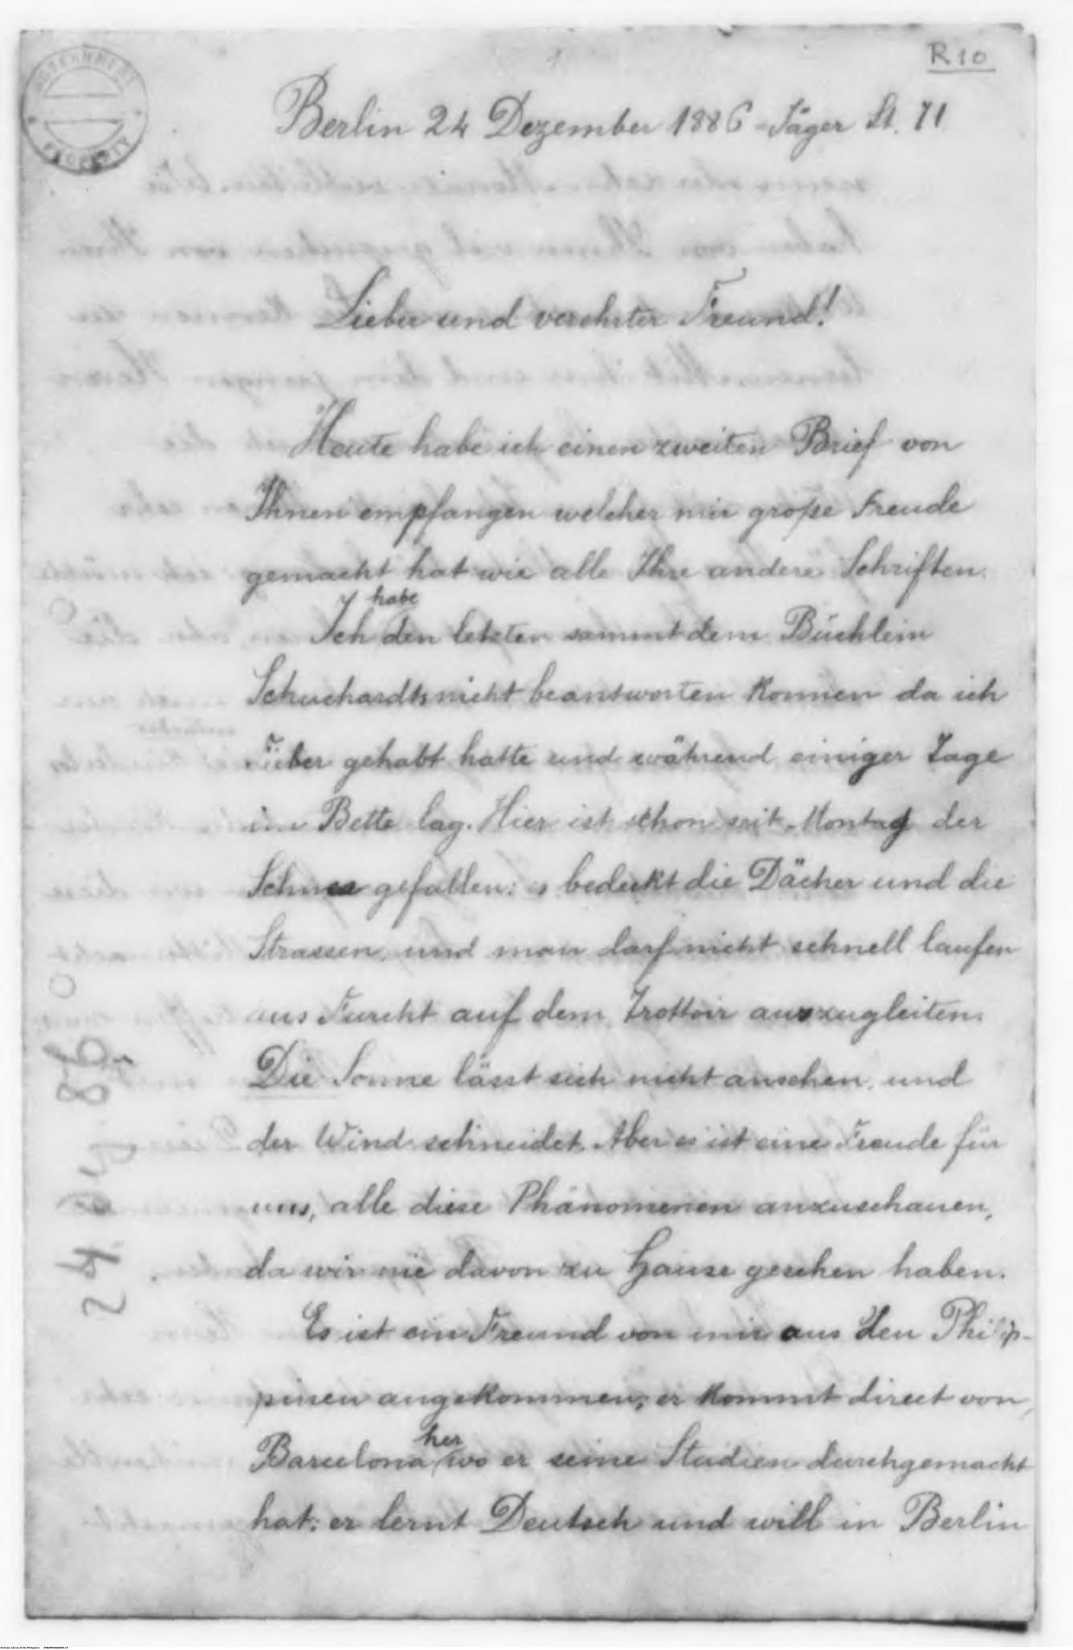 R10
GOVERNMENT PROPERTY
Berlin 24 Dezember 1886 - Jäger St. 71
Lieber und verehrter Freund!
Heute habe ich einen zweiten Brief von
Ihnen empfangen welcher mir große Freude
gemacht hat wie alle Ihre andere Schriften.
Ich habe den letzten sammt dem Büchlein
Schuchardts nicht beantworten konnen da ich
Fieber gehabt hatte und während einiger Tage
im Bette lag. Hier ist schon seit Montag der
Schnee gefallen: es bedeckt die Dächer und die
Strassen, und man darf nicht schnell laufen
aus Furcht auf dem Trottoir auszugleiten.
Die Sonne lässt sich nicht ansehen, und
der Wind schneidet. Aber es ist eine Freude für
uns, alle diese Phänomenen anzuschauen,
da wir nie davon zu Hause gesehen haben.
Es ist ein Freund von mir aus den Philip-
pinen angekommen; er kommt direct von
Barcelona her, wo er seine Studien durchgemacht
hat: er lernt Deutsch und will in Berlin